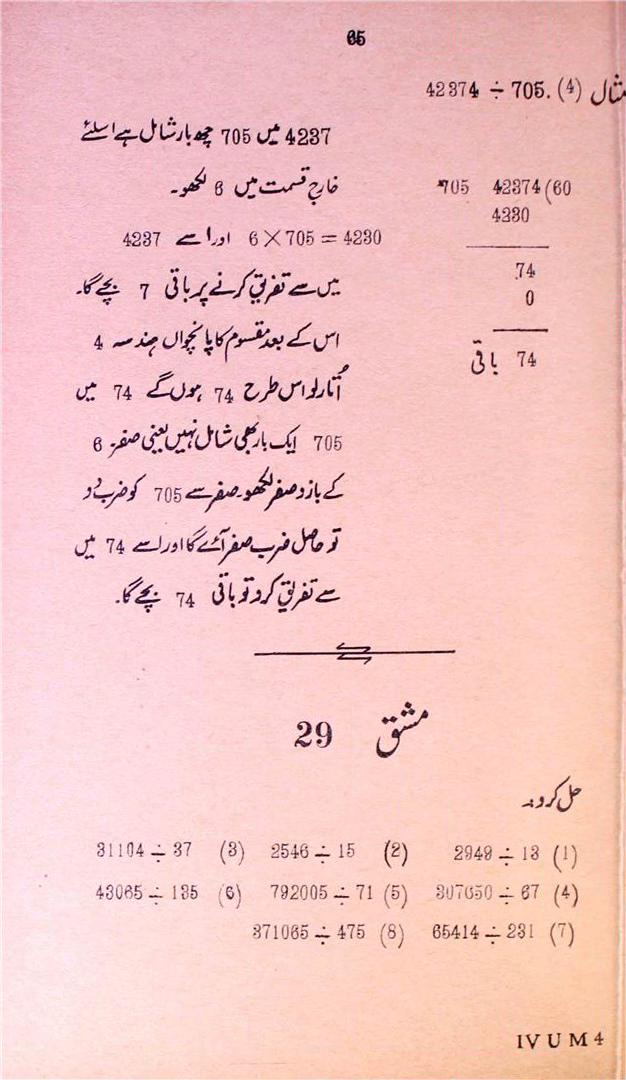 65
مثال (4). 705 ÷ 42374
4237 میں 705 چھ بار شامل ہے اسلئے
خارج قسمت میں 6 لکھو۔
6 × 705 = 4230 اور اسے 4237
میں سے تفریق کرنے پر باقی 7 بچے گا۔
اس کے بعد مقسوم کا پانچواں ہندسہ 4
اُتار لو اس طرح 74 ہوں گے 74 میں
705 ایک بار بھی شامل نہیں یعنی صفر۔ 6
کے بازو صفر لکھو۔ صفر سے 705 کو ضرب دو
تو حاصل ضرب صفر آئے گا اور اسے 74 میں
سے تفریق کرو تو باقی 74 بچے گا۔
705 42374(60
4230
74
0
74 باقی
مشق 29
حل کرو :۔
(1) 2949 ÷ 13 (2) 2546 ÷ 15 (3) 31104 ÷ 37
(4) 307650 ÷ 67 (5) 792005 ÷ 71 (6) 43065 ÷ 135
(7) 65414 ÷ 231 (8) 371065 ÷ 475
IV U M 4